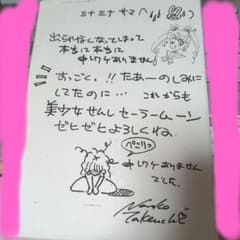 ミナミナサマへ
出られなくなってしまって
本当に本当に
申しワケありません
すっごく!!たぁーのしみに
してたのに… これからも
美少女せんしセーラームーン
ゼヒゼヒよろしくね
ペこリっ
申しワケありません
でした。
Naoko
Takeuchi